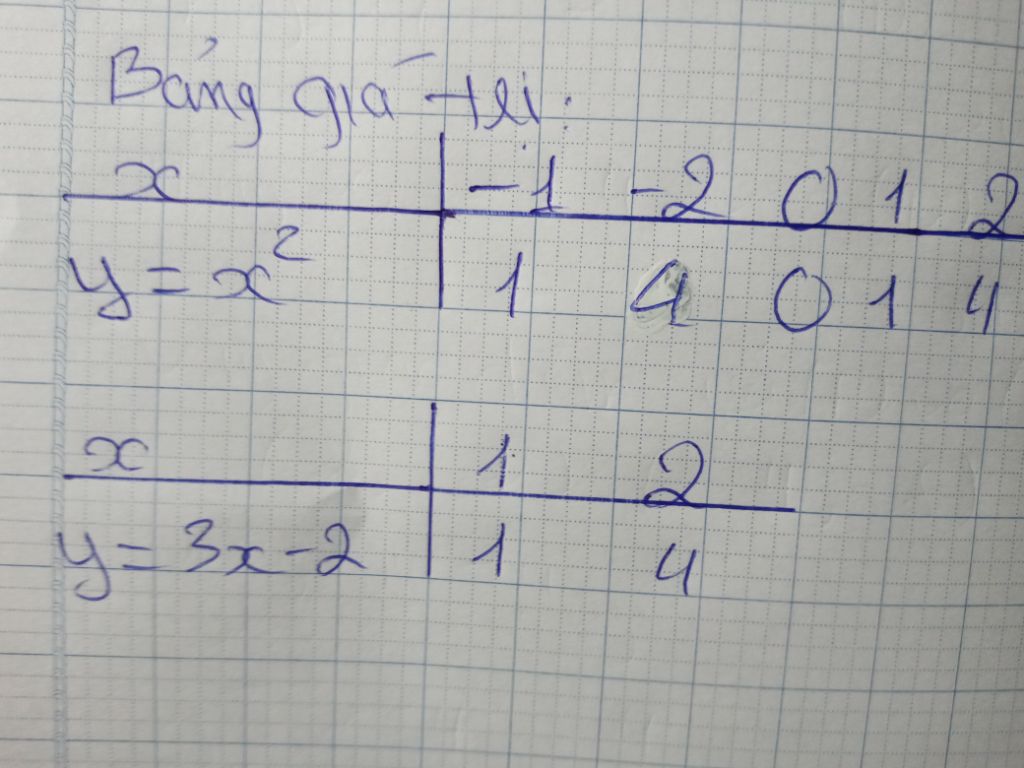 Bảng giá trị:
x -1 -2 0 1 2
y = x² 1 4 0 1 4
x 1 2
y = 3x - 2 1 4